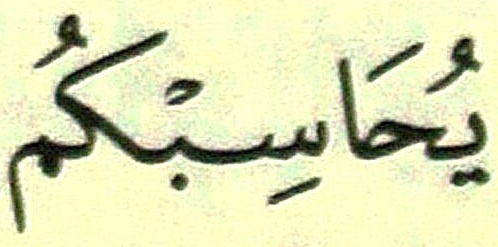 يُحَاسِبْكُمُ